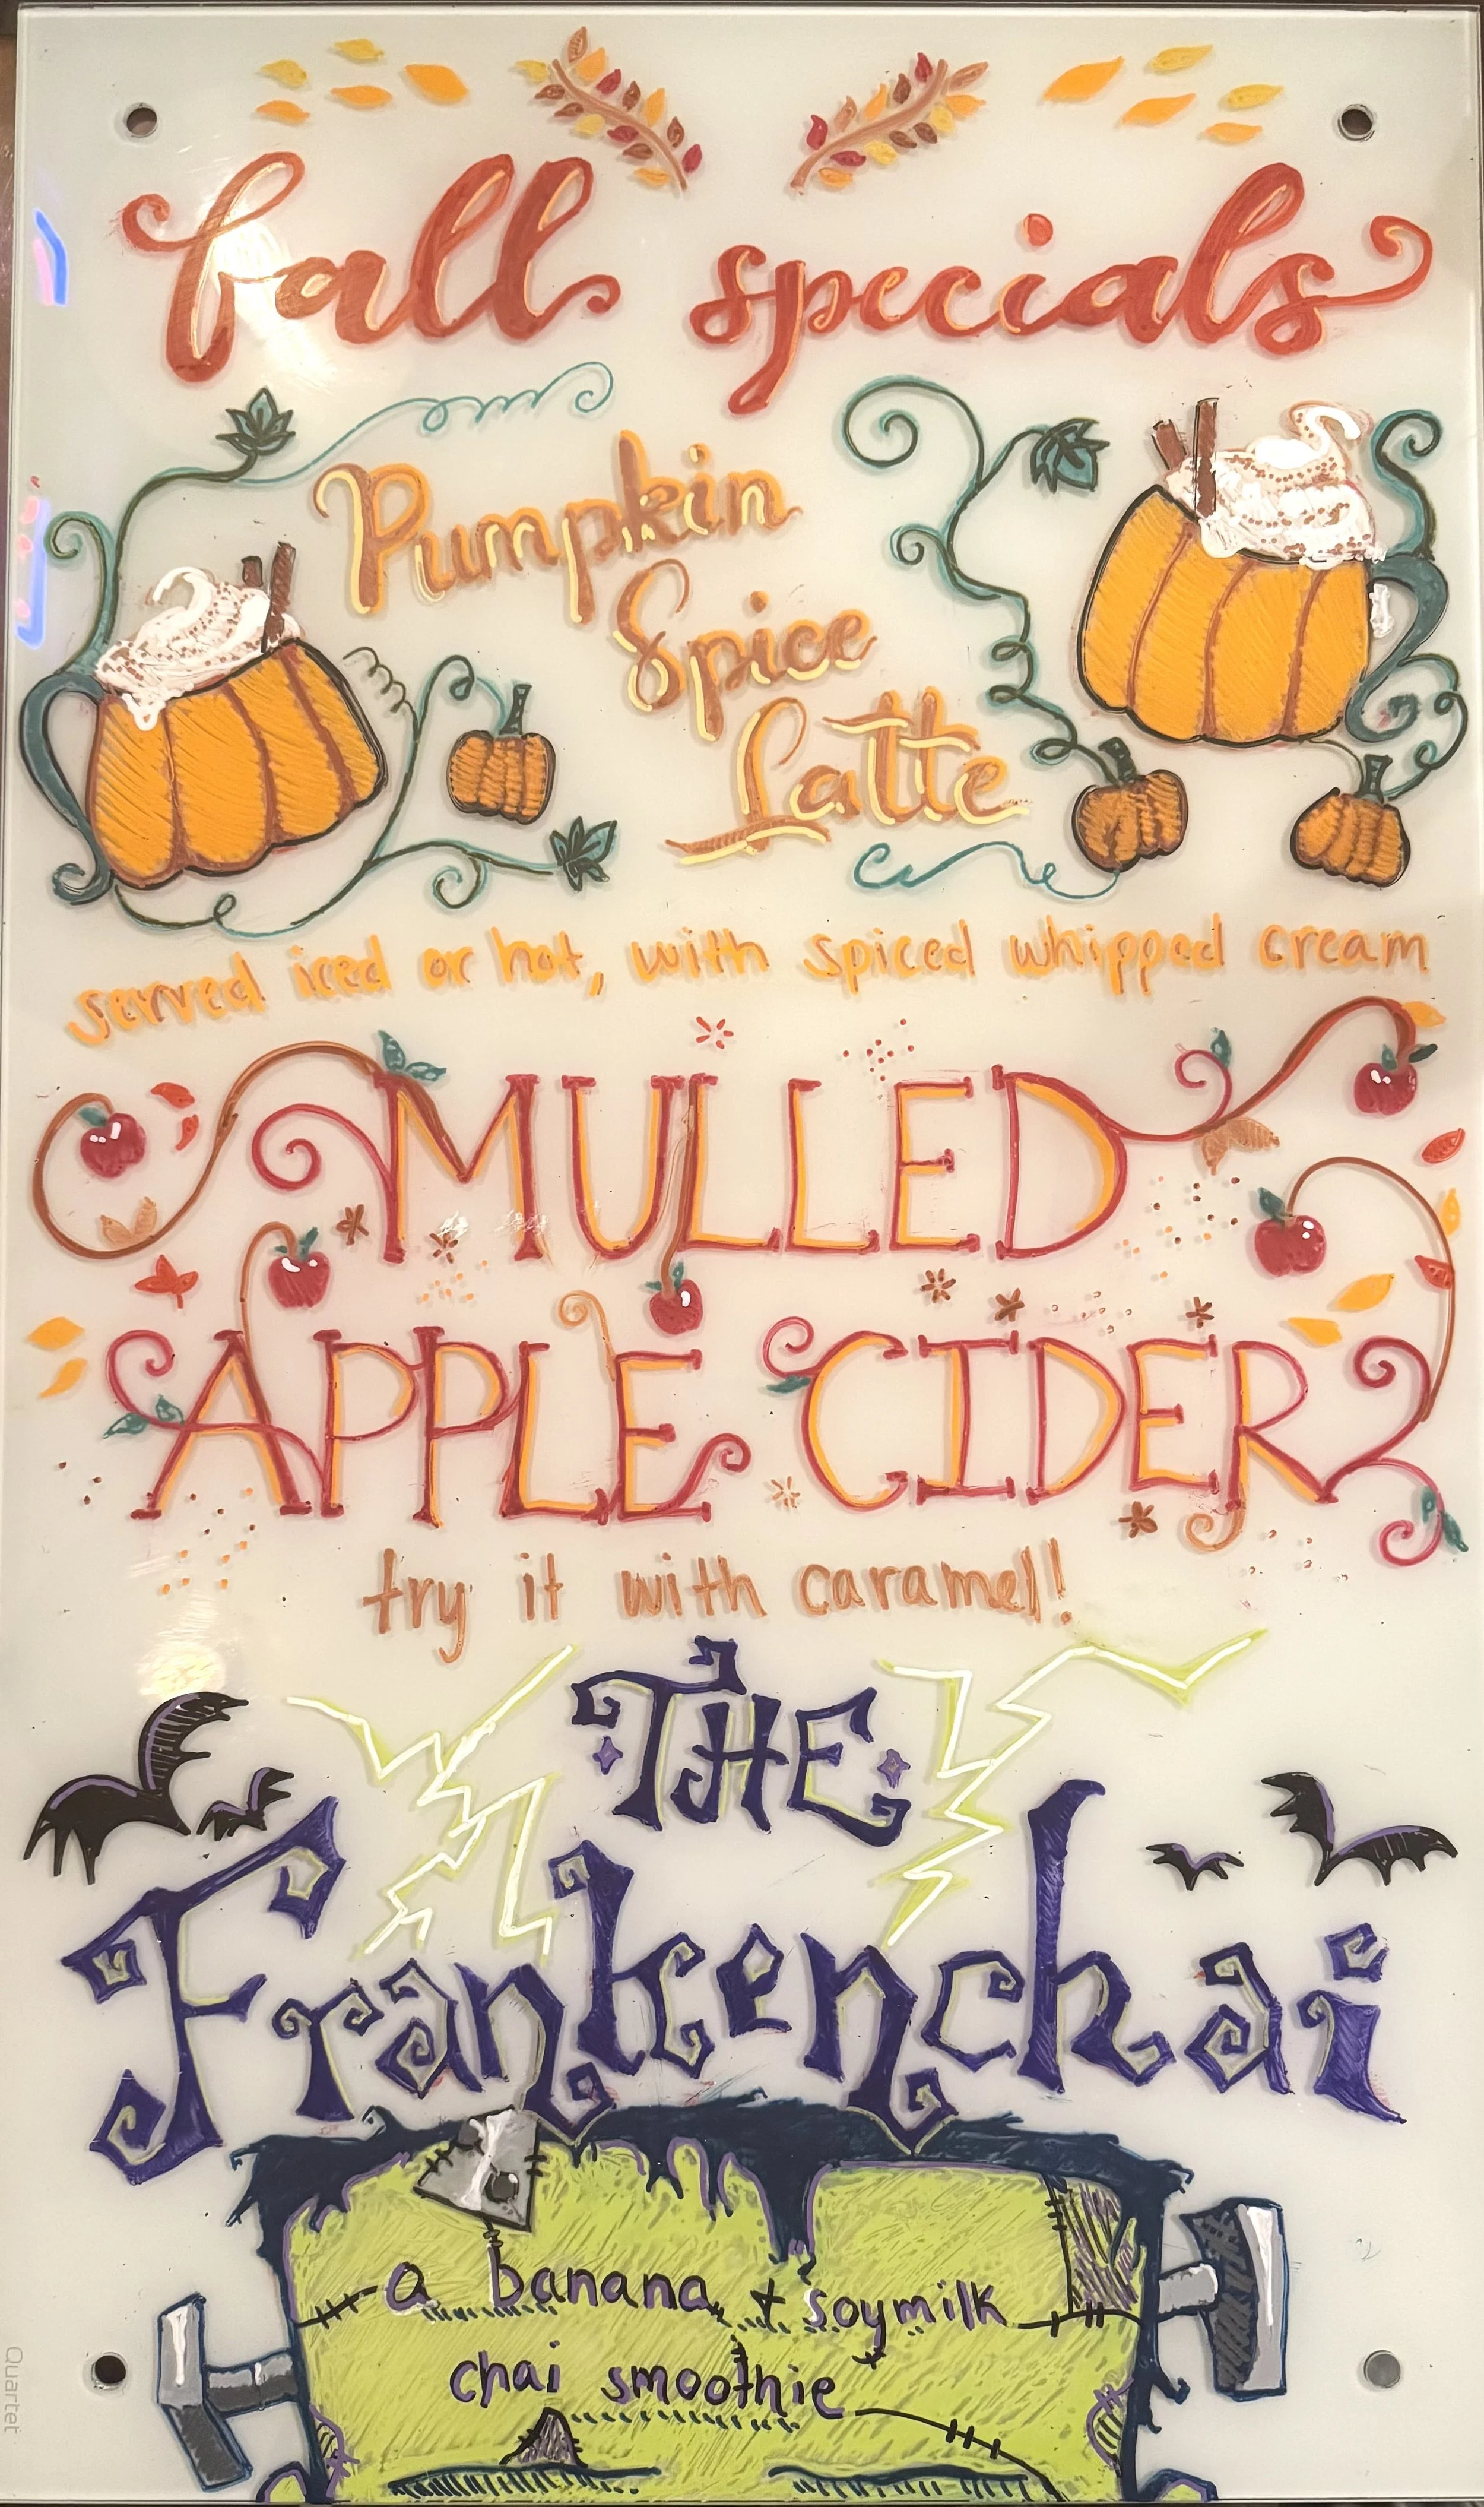 fall specials
Pumpkin
Spice
Latte
served iced or hot, with spiced whipped cream
MULLED
APPLE CIDER
try it with caramel!
THE
Frankenchai
a banana + soymilk
chai smoothie
Quartet